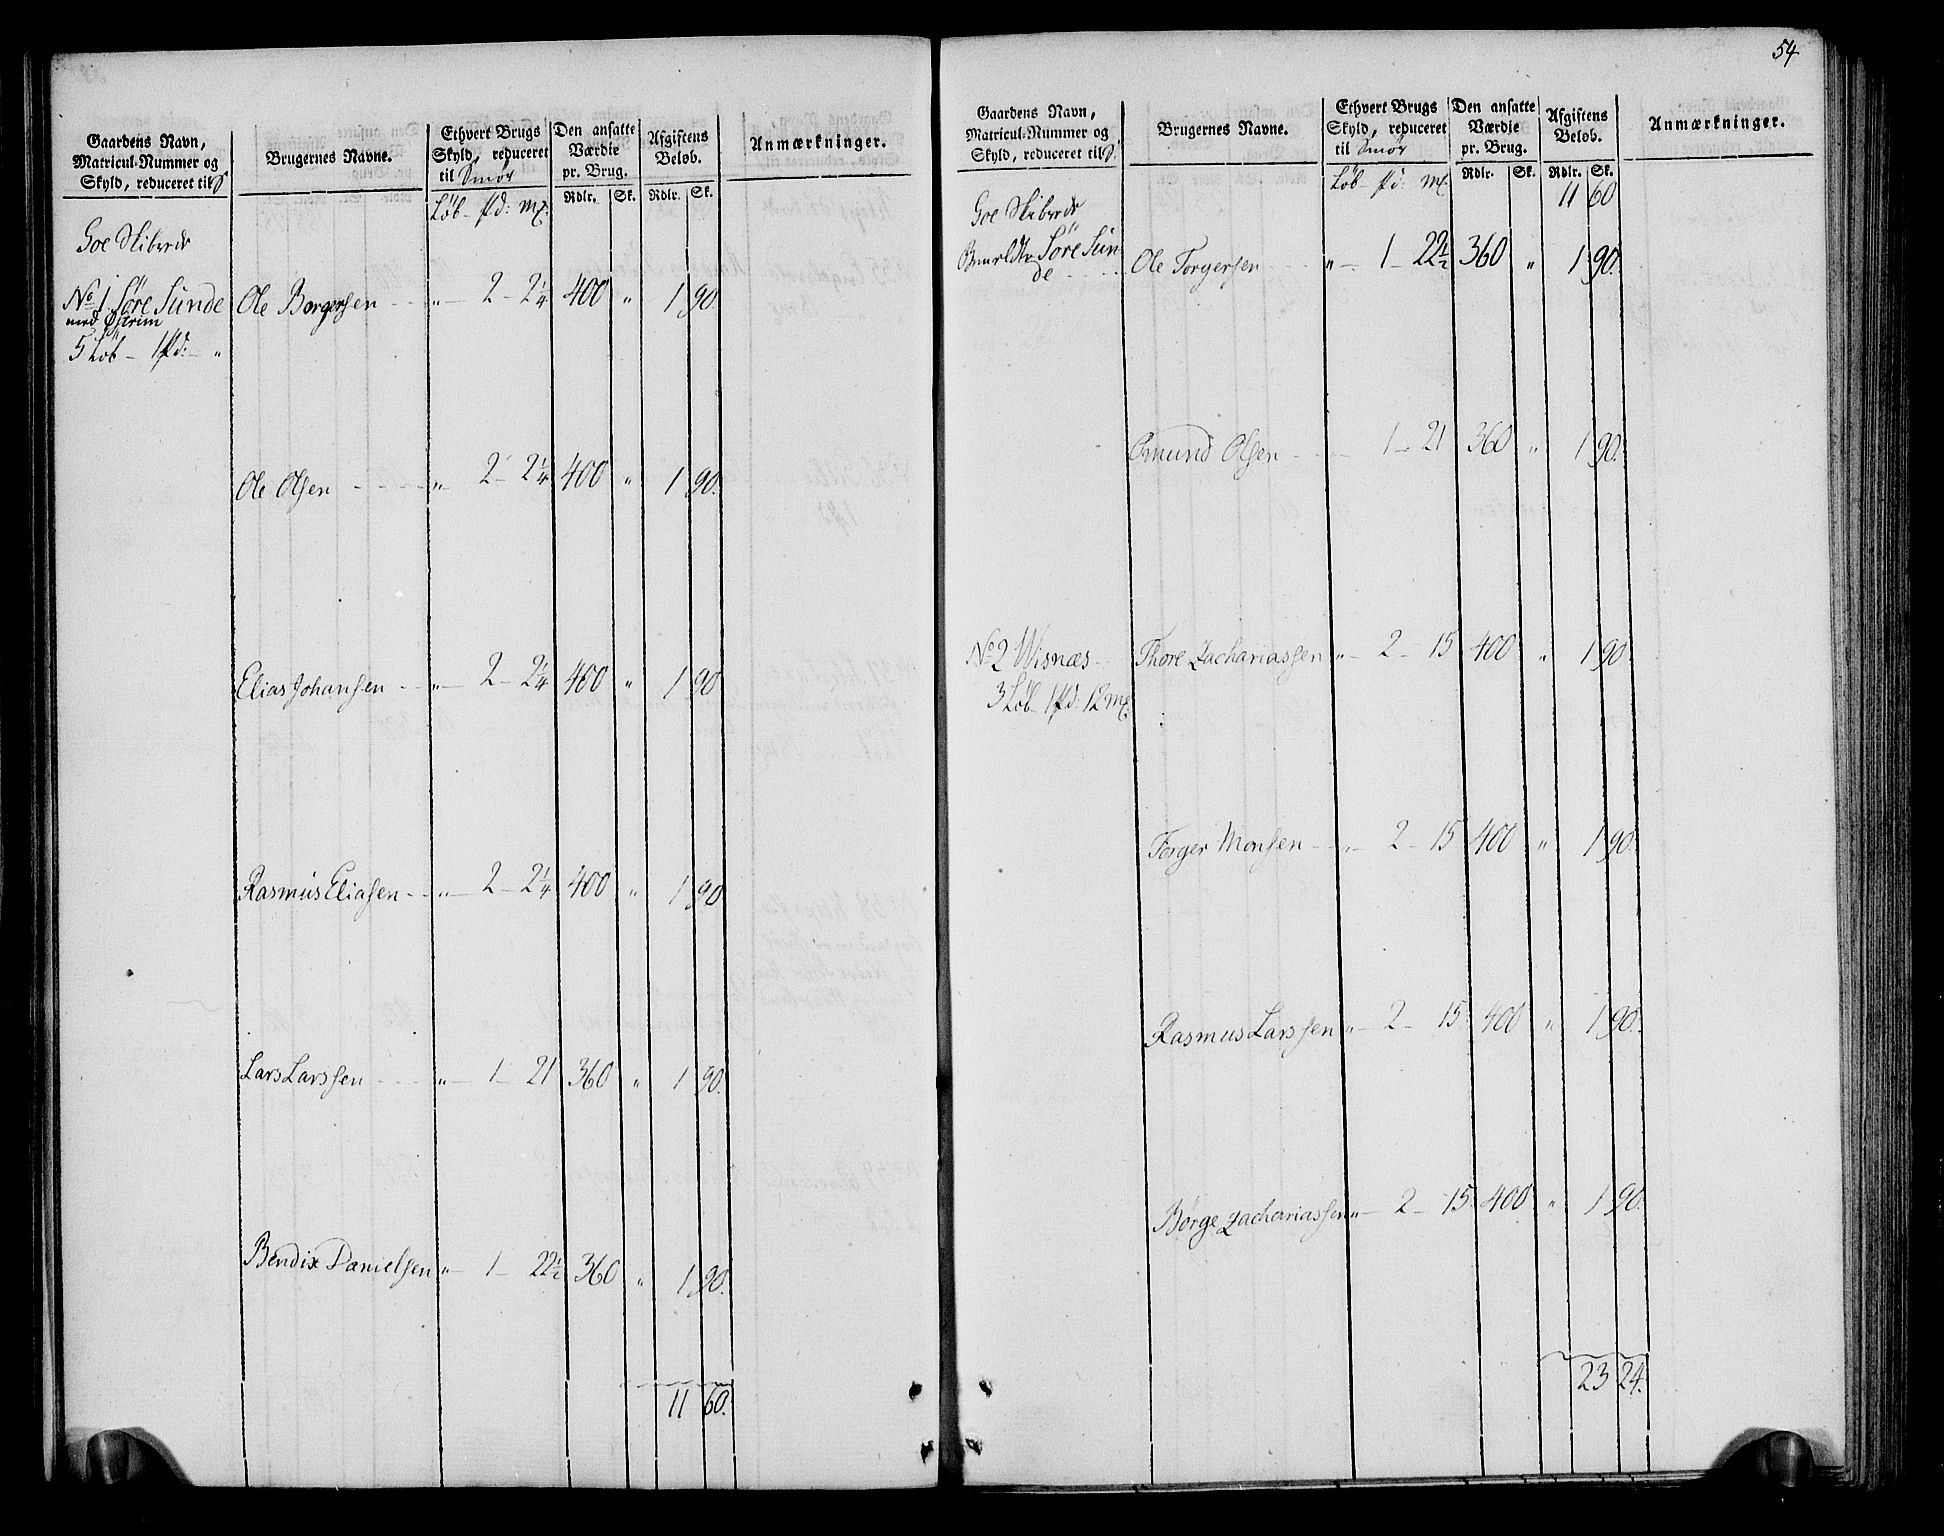 Gaardens Navn,
Matricul-Nummer og
Skyld, reduceret til
Brugernes Navne.
Ethvert Brugs
Skyld, reduceret
til Smör
Den ansatte
Værdie
pr. Brug.
Afgiftens
Beløb.
Anmærkninger.
Rdlr. Sk. Rdlr. Sk.
Löb - pd: mk.
Goe Skibrede
No 1 Søre Sunde Ole Borgersen " 2 - 2 1/4 400 " 1 90.
med
5 Löb - 1 pd: - "
Ole Olsen - - " 2 - 2 1/4 400 " 1 90.
Elias Johansen - - " 2 - 2 1/4 400 " 1 90
Rasmus Eliasen - - " 2 - 2 1/4 400 " 1 90
Lars Larssen - - " 1 - 21 360 " 1 90.
Bendix Danielsen " 1 - 22 1/2 360 " 1 90.
11 60.
54
Gaardens Navn,
Matricul-Nummer og
Skyld, reduceret til
Brugernes Navne.
Ethvert Brugs
Skyld, reduceret
til Smör
Den ansatte
Værdie
pr. Brug.
Afgiftens
Beløb.
Anmærkninger.
Rdlr. Sk. Rdlr. Sk.
Löb - pd: mk.
11 60
Goe Skibrede
Søre Sun-
de - - Ole Torgersen - - " 1 - 22 1/2 360 " 1 90.
Omund Olsen - - 1 - 21 360 " 1 90.
No 2 Wisnæs - Thore Zachariassen " 2 - 15 400 " 1 90.
3 Löb - 1 pd: 12 mk.
Torger Monsen - - " 2 - 15 400 " 1 90.
Rasmus Larssen " 2 - 15 400 " 1 90.
Børge Zachariassen " 2 - 15 400 " 1 90.
23 24.